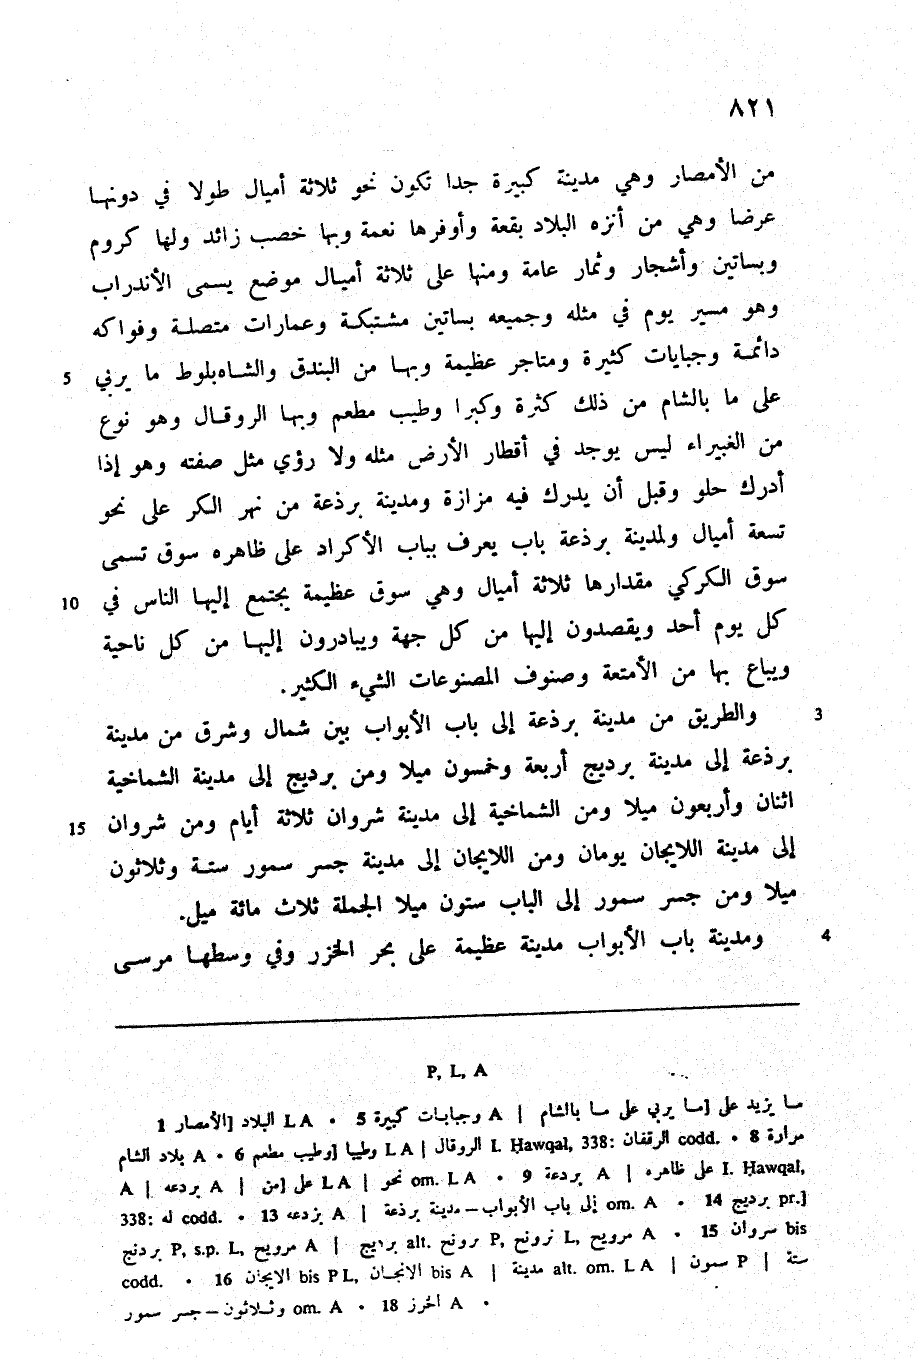 ٨٢١
من الأمصار وهي مدينة كبيرة جدا تكون نحو ثلاثة أميال طولا في دونها
عرضا وهي من أنزه البلاد بقعة وأوفرها نعمة وبها خصب زائد ولها كروم
وبساتين وأشجار وثمار عامة ومنها على ثلاثة أميال موضع يسمى الأندراب
وهو مسير يوم في مثله وجميعه بساتين مشتبكة وعمارات متصلة وفواكه
5 دائمة وجبايات كثيرة ومتاجر عظيمة وبها من البندق والشاه‌بلوط ما يربي
على ما بالشام من ذلك كثرة وكبرا وطيب مطعم وبها الروقال وهو نوع
من الغبيراء ليس يوجد في أقطار الأرض مثله ولا رؤي مثل صفته وهو إذا
أدرك حلو وقبل أن يدرك فيه مزازة ومدينة برذعة من نهر الكر على نحو
تسعة أميال ولمدينة برذعة باب يعرف بباب الأكراد على ظاهره سوق تسمى
10 سوق الكركي مقدارها ثلاثة أميال وهي سوق عظيمة يجتمع إليها الناس في
كل يوم أحد ويقصدون إليها من كل جهة ويبادرون إليها من كل ناحية
ويباع بها من الأمتعة وصنوف المصنوعات الشيء الكثير.
3 والطريق من مدينة برذعة إلى باب الأبواب بين شمال وشرق من مدينة
برذعة إلى مدينة برديج أربعة وخمسون ميلا ومن برديج إلى مدينة الشماخية
15 اثنان وأربعون ميلا ومن الشماخية إلى مدينة شروان ثلاثة أيام ومن شروان
إلى مدينة اللايجان يومان ومن اللايجان إلى مدينة جسر سمور ستة وثلاثون
ميلا ومن جسر سمور إلى الباب ستون ميلا الجملة ثلاث مائة ميل.
4 ومدينة باب الأبواب مدينة عظيمة على بحر الخزر وفي وسطها مرسى
P, L, A
1 الأمصار] البلاد L A • 5 وجبابات كبيرة A | ما يربي على ما بالشام] ما يزيد على
بلاد الشام A • 6 وطيب مطعم] وطيبا L A | الروقال I. Ḥawqal, 338: الرقفان codd. • 8 مرارة
A | بردعه A | من] على L A | نحو om. L A • 9 بردعة A | على ظاهره I. Ḥawqal,
338: له codd. • 13 بزدعه A | إلى باب الأبواب – مدينة برذعة om. A • 14 برديج pr.]
بردنج P, s.p. L, مرويح A | برديج alt. برونح P, نرونح L, مرويح A • 15 سروان bis
codd. • 16 الايجان bis P L, الانجان bis A | مدينة alt. om. L A | سمون P | ستة
وثلاثون – جسر سمور om. A • 18 الخرز A •